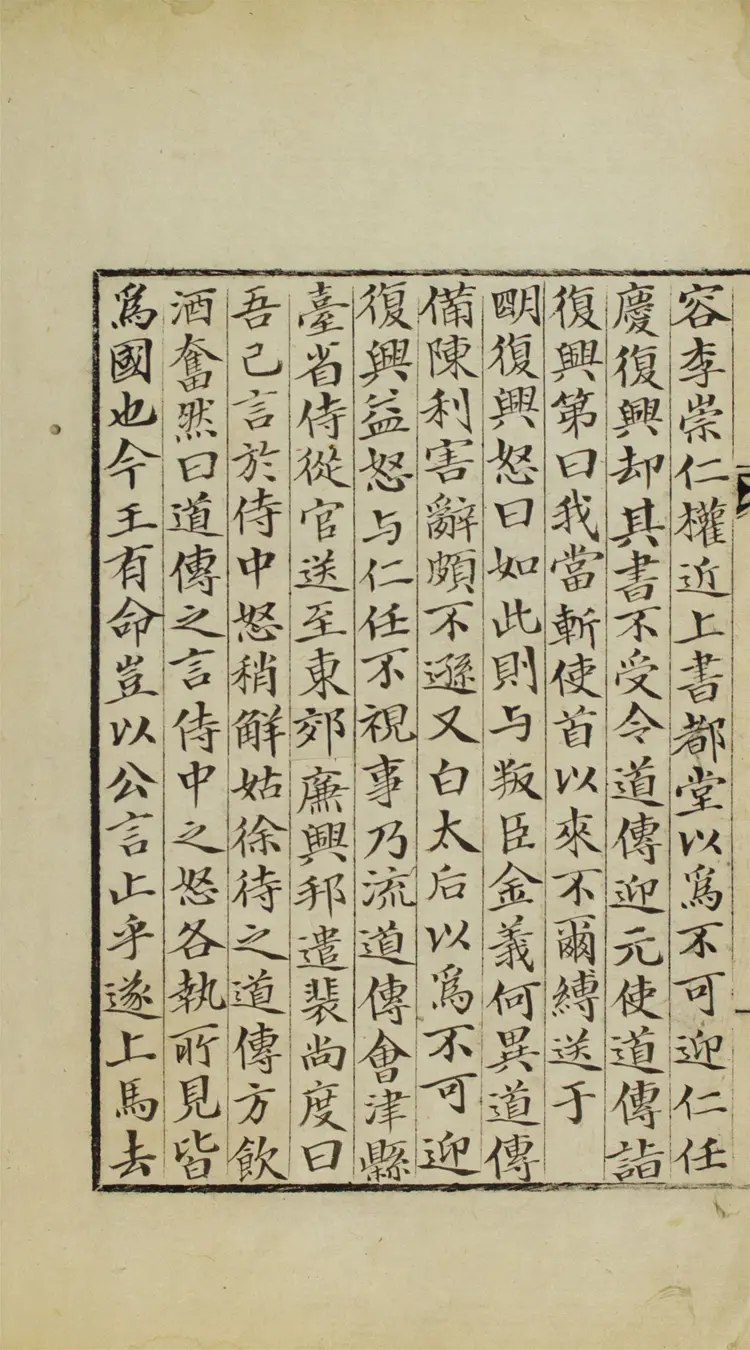 容李崇仁權近上書都堂以爲不可迎仁任
慶復興却其書不受令道傳迎元使道傳詣
復興第曰我當斬使首以來不爾縛送于
明復興怒曰如此則与叛臣金義何異道傳
備陳利害辭頗不遜又白太后以爲不可迎
復興益怒与仁任不視事乃流道傳會津縣
臺省侍從官送至東郊廉興邦遣裴尙度曰
吾已言於侍中怒稍觧姑徐待之道傳方飮
酒奮然曰道傳之言侍中之怒各執所見皆
爲國也今王有命豈以公言止乎遂上馬去